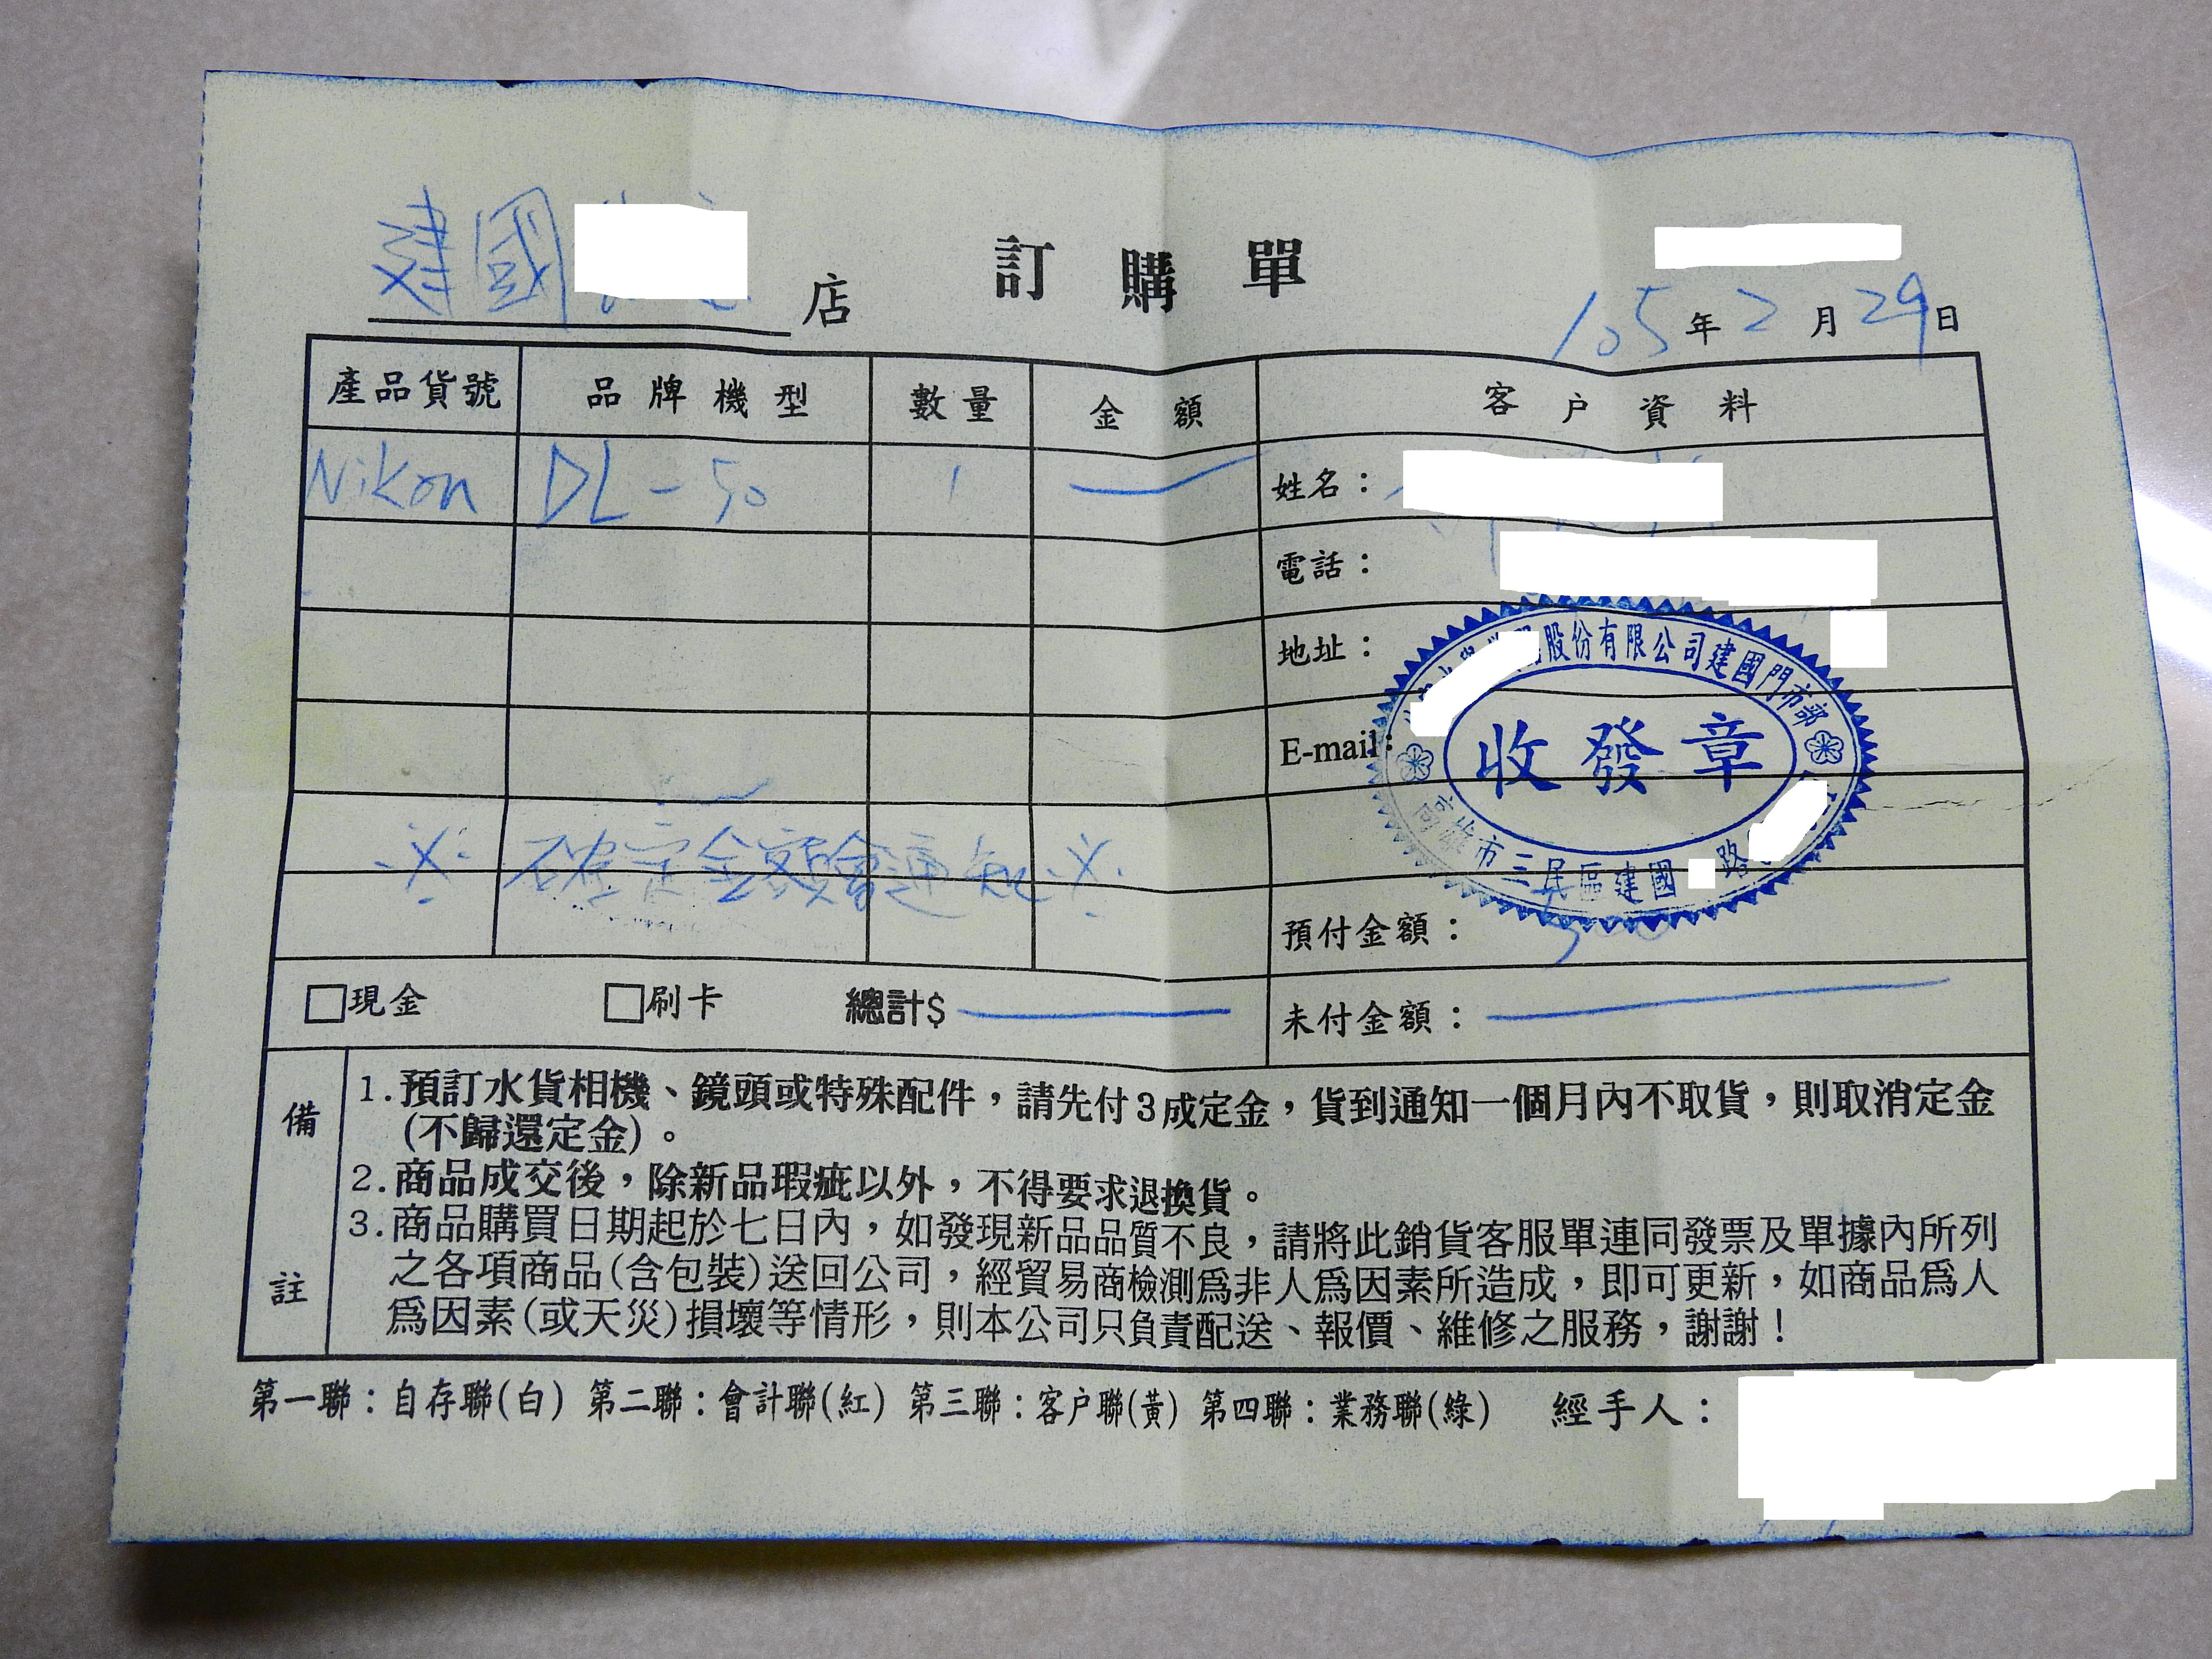 建國 店
訂購單
105年2月29日
產品貨號 品牌機型 數量 金額 客戶資料
Nikon DL-50 1 姓名：
電話：
地址：
E-mail:
股份有限公司建國門市部
收發章
高雄市三民區建國 路
※確定金額會通知※
預付金額：
□現金 □刷卡 總計$ 未付金額：
備註
1.預訂水貨相機、鏡頭或特殊配件，請先付3成定金，貨到通知一個月內不取貨，則取消定金
(不歸還定金)。
2.商品成交後，除新品瑕疵以外，不得要求退換貨。
3.商品購買日期起於七日內，如發現新品品質不良，請將此銷貨客服單連同發票及單據內所列
之各項商品(含包裝)送回公司，經貿易商檢測爲非人爲因素所造成，即可更新，如商品爲人
爲因素(或天災)損壞等情形，則本公司只負責配送、報價、維修之服務，謝謝！
第一聯：自存聯(白) 第二聯：會計聯(紅) 第三聯：客戶聯(黃) 第四聯：業務聯(綠) 經手人：